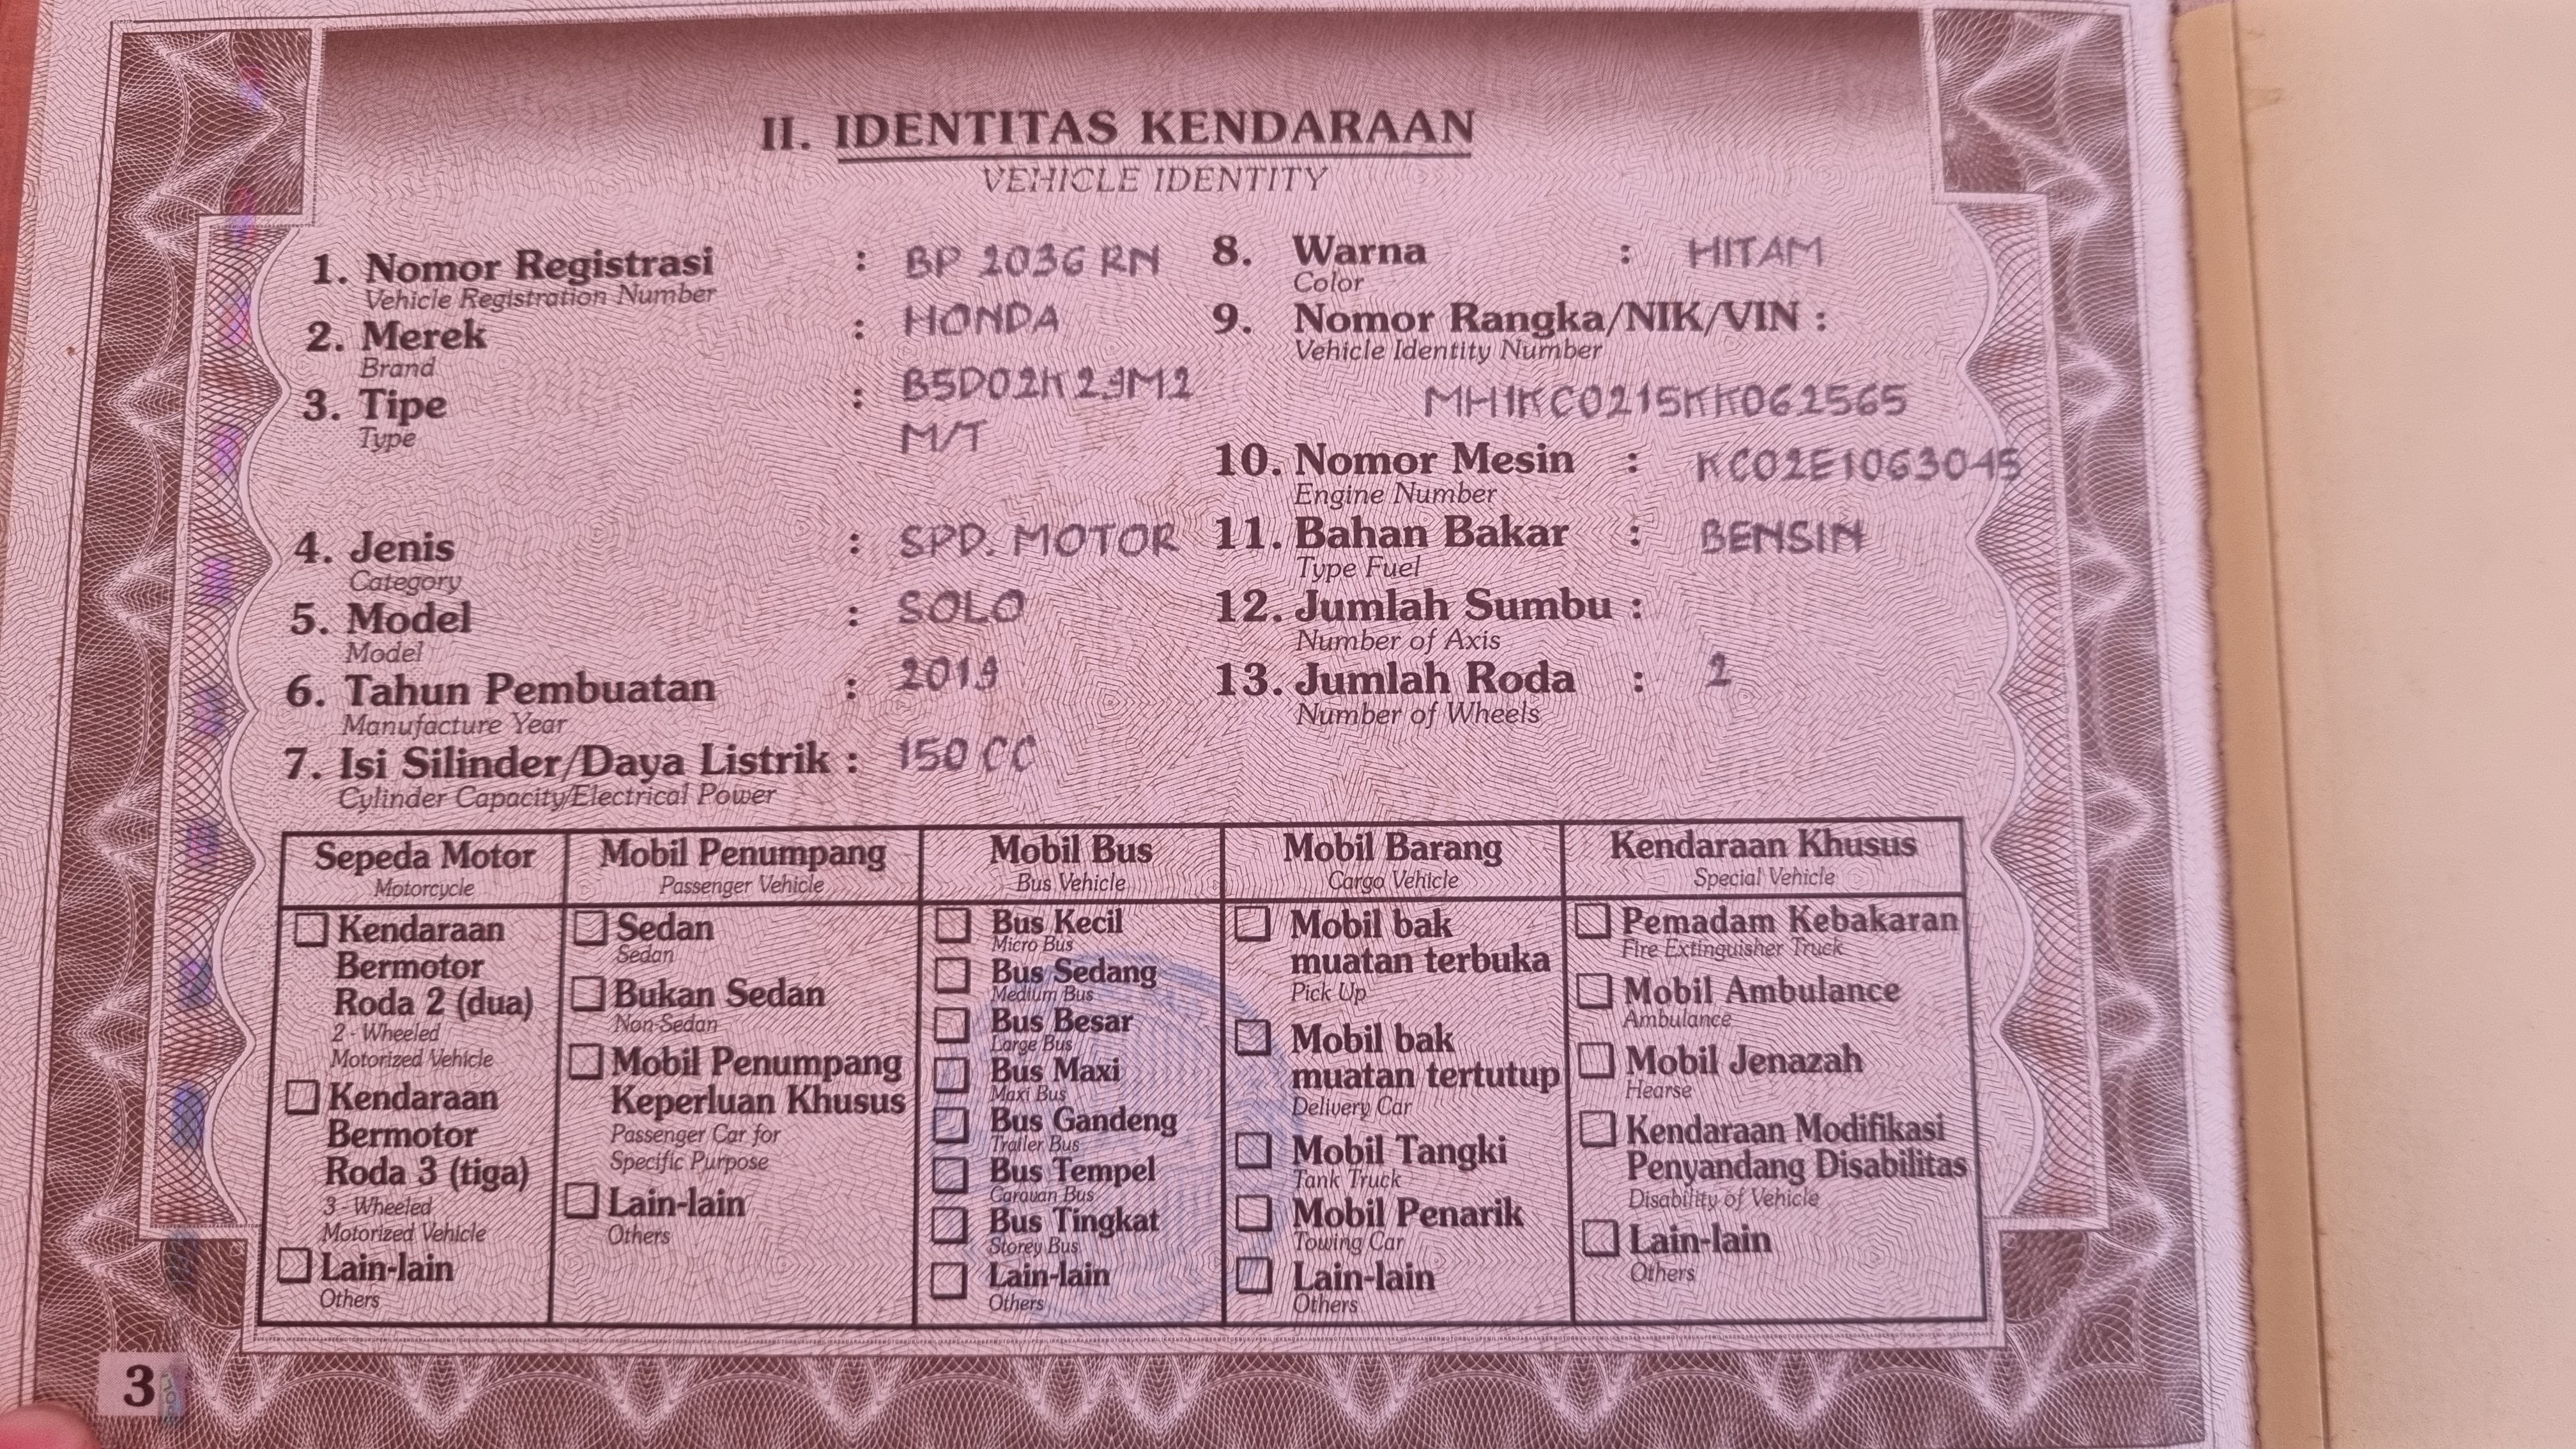 II. IDENTITAS KENDARAAN
VEHICLE IDENTITY
1. Nomor Registrasi : BP 2036 RN
Vehicle Registration Number
2. Merek : HONDA
Brand
3. Tipe : B5D02K29M2
Type M/T
4. Jenis : SPD. MOTOR
Category
5. Model : SOLO
Model
6. Tahun Pembuatan : 2019
Manufacture Year
7. Isi Silinder/Daya Listrik : 150 CC
Cylinder Capacity/Electrical Power
8. Warna : HITAM
Color
9. Nomor Rangka/NIK/VIN :
Vehicle Identity Number
MH1KC0215KK062565
10. Nomor Mesin : KC02E1063045
Engine Number
11. Bahan Bakar : BENSIN
Type Fuel
12. Jumlah Sumbu :
Number of Axis
13. Jumlah Roda : 2
Number of Wheels
Sepeda Motor
Motorcycle
Kendaraan
Bermotor
Roda 2 (dua)
2-Wheeled
Motorized Vehicle
Kendaraan
Bermotor
Roda 3 (tiga)
3-Wheeled
Motorized Vehicle
Lain-lain
Others
Mobil Penumpang
Passenger Vehicle
Sedan
Sedan
Bukan Sedan
Non-Sedan
Mobil Penumpang
Keperluan Khusus
Passenger Car for
Specific Purpose
Lain-lain
Others
Mobil Bus
Bus Vehicle
Bus Kecil
Micro Bus
Bus Sedang
Medium Bus
Bus Besar
Large Bus
Bus Maxi
Maxi Bus
Bus Gandeng
Trailer Bus
Bus Tempel
Caravan Bus
Bus Tingkat
Storey Bus
Lain-lain
Others
Mobil Barang
Cargo Vehicle
Mobil bak
muatan terbuka
Pick Up
Mobil bak
muatan tertutup
Delivery Car
Mobil Tangki
Tank Truck
Mobil Penarik
Towing Car
Lain-lain
Others
Kendaraan Khusus
Special Vehicle
Pemadam Kebakaran
Fire Extinguisher Truck
Mobil Ambulance
Ambulance
Mobil Jenazah
Hearse
Kendaraan Modifikasi
Penyandang Disabilitas
Disability of Vehicle
Lain-lain
Others
3